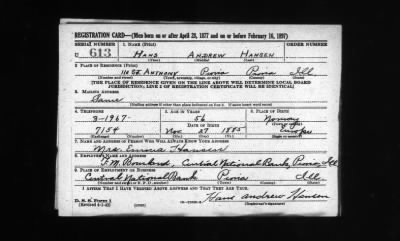 REGISTRATION CARD—(Men born on or after April 28, 1877 and on or before February 16, 1897)
SERIAL NUMBER 1. NAME (Print) ORDER NUMBER
U 613 Hans Andrew Hansen
(First) (Middle) (Last)
2. PLACE OF RESIDENCE (Print)
110 St. Anthony Peoria Peoria Ill
(Number and street) (Town, township, village, or city) (County) (State)
[THE PLACE OF RESIDENCE GIVEN ON THE LINE ABOVE WILL DETERMINE LOCAL BOARD
JURISDICTION; LINE 2 OF REGISTRATION CERTIFICATE WILL BE IDENTICAL]
3. MAILING ADDRESS
Same
[Mailing address if other than place indicated on line 2. If same insert word same]
4. TELEPHONE 5. AGE IN YEARS 6. PLACE OF BIRTH
3-1967- 56 Norway
DATE OF BIRTH (Town or county)
7154 Nov 27 1885 Europe
(Exchange) (Number) (Mo.) (Day) (Yr.) (State or country)
7. NAME AND ADDRESS OF PERSON WHO WILL ALWAYS KNOW YOUR ADDRESS
Mrs Emma Hansen
8. EMPLOYER'S NAME AND ADDRESS
Central National Bank, Peoria, Ill.
9. PLACE OF EMPLOYMENT OR BUSINESS
Central National Bank Peoria Ill.
(Number and street or R. F. D. number) (Town) (County) (State)
I AFFIRM THAT I HAVE VERIFIED ABOVE ANSWERS AND THAT THEY ARE TRUE.
D. S. S. Form 1
(Revised 4-1-42) Hans Andrew Hansen
(Registrant's signature)